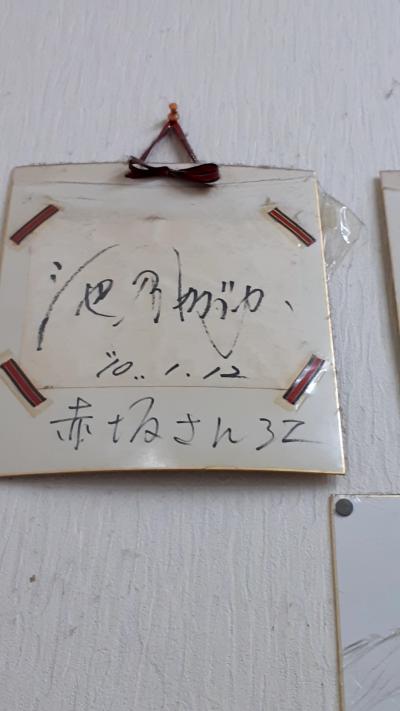 池乃めだか
'10.1.12
赤坂さん江